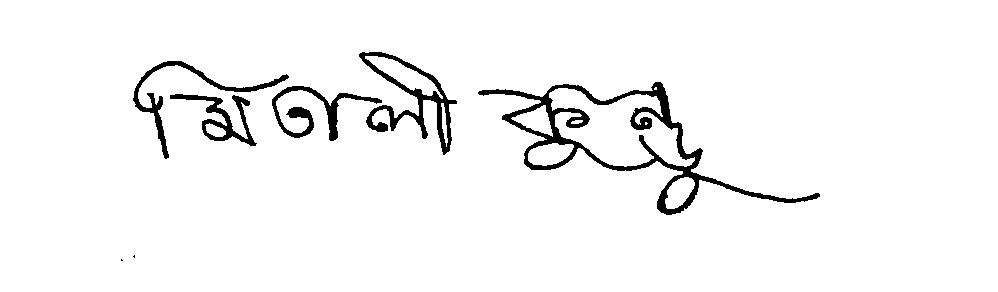 মিতালী কুন্ডু